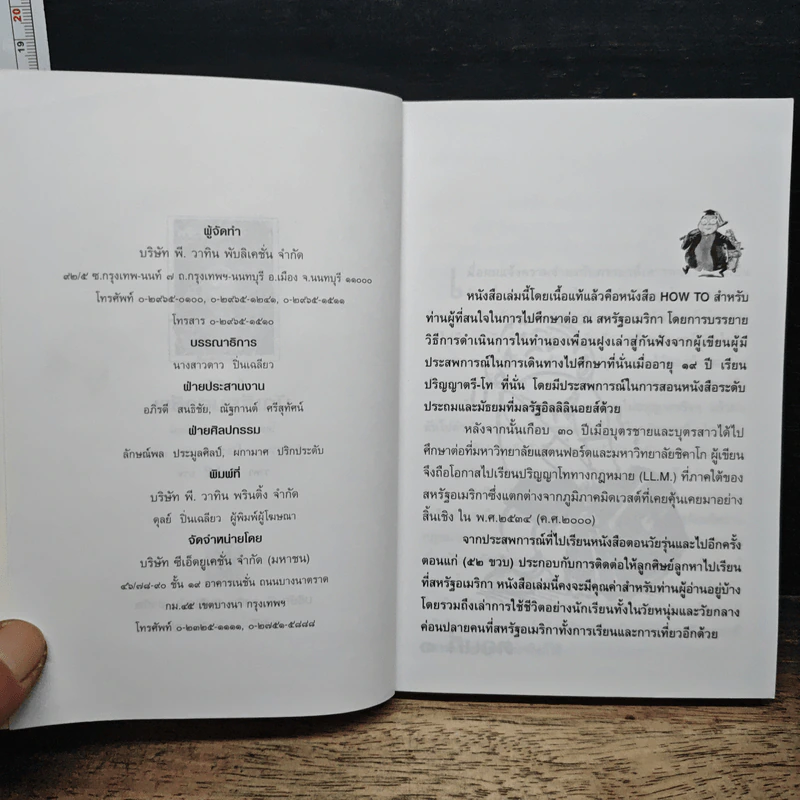 20
19
ผู้จัดทำ
บริษัท พี. วาทิน พับลิเคชั่น จำกัด
๙๒/๕ ซ.กรุงเทพ-นนท์ ๗ ถ.กรุงเทพฯ-นนทบุรี อ.เมือง จ.นนทบุรี ๑๑๐๐๐
โทรศัพท์ ๐-๒๙๖๕-๐๑๐๐, ๐-๒๙๖๕-๑๒๔๑, ๐-๒๙๖๕-๑๕๑๑
โทรสาร ๐-๒๙๖๕-๑๕๑๐
บรรณาธิการ
นางสาวดาว ปิ่นเฉลียว
ฝ่ายประสานงาน
อภิรดี สนธิชัย, ณัฐกานต์ ศรีสุทัศน์
ฝ่ายศิลปกรรม
ลักษณ์พล ประมูลศิลป์, ผกามาศ ปริกประดับ
พิมพ์ที่
บริษัท พี. วาทิน พรินติ้ง จำกัด
ดุลย์ ปิ่นเฉลียว ผู้พิมพ์ผู้โฆษณา
จัดจำหน่ายโดย
บริษัท ซีเอ็ดยูเคชั่น จำกัด (มหาชน)
๔๖/๗๘-๙๐ ชั้น ๑๙ อาคารเนชั่น ถนนบางนาตราด
กม.๔๕ เขตบางนา กรุงเทพฯ
โทรศัพท์ ๐-๒๓๒๕-๑๑๑๑, ๐-๒๗๕๑-๕๘๘๘
หนังสือเล่มนี้โดยเนื้อแท้แล้วคือหนังสือ HOW TO สำหรับ
ท่านผู้ที่สนใจในการไปศึกษาต่อ ณ สหรัฐอเมริกา โดยการบรรยาย
วิธีการดำเนินการในทำนองเพื่อนฝูงเล่าสู่กันฟังจากผู้เขียนผู้มี
ประสพการณ์ในการเดินทางไปศึกษาที่นั่นเมื่ออายุ ๑๙ ปี เรียน
ปริญญาตรี-โท ที่นั่น โดยมีประสพการณ์ในการสอนหนังสือระดับ
ประถมและมัธยมที่มลรัฐอิลลิลินอยส์ด้วย
หลังจากนั้นเกือบ ๓๐ ปีเมื่อบุตรชายและบุตรสาวได้ไป
ศึกษาต่อที่มหาวิทยาลัยแสตนฟอร์ดและมหาวิทยาลัยชิคาโก ผู้เขียน
จึงถือโอกาสไปเรียนปริญญาโททางกฎหมาย (LL.M.) ที่ภาคใต้ของ
สหรัฐอเมริกาซึ่งแตกต่างจากภูมิภาคมิดเวสต์ที่เคยคุ้นเคยมาอย่าง
สิ้นเชิง ใน พ.ศ.๒๕๓๔ (ค.ศ.๒๐๐๐)
จากประสพการณ์ที่ไปเรียนหนังสือตอนวัยรุ่นและไปอีกครั้ง
ตอนแก่ (๕๒ ขวบ) ประกอบกับการติดต่อให้ลูกศิษย์ลูกหาไปเรียน
ที่สหรัฐอเมริกา หนังสือเล่มนี้คงจะมีคุณค่าสำหรับท่านผู้อ่านอยู่บ้าง
โดยรวมถึงเล่าการใช้ชีวิตอย่างนักเรียนทั้งในวัยหนุ่มและวัยกลาง
ค่อนปลายคนที่สหรัฐอเมริกาทั้งการเรียนและการเที่ยวอีกด้วย